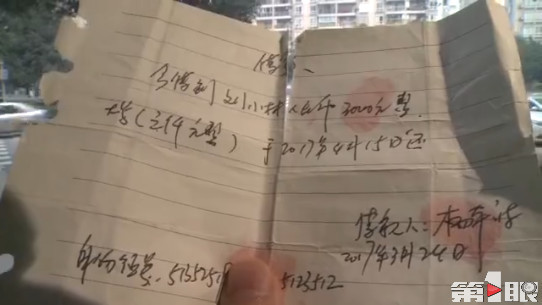 借条
今借到 刘小林人民币 3000元整.
大写(三仟元整) 于2017年4月15日还
借款人:
2017年3月24日
身份证号. 5135251 5123512
第1眼